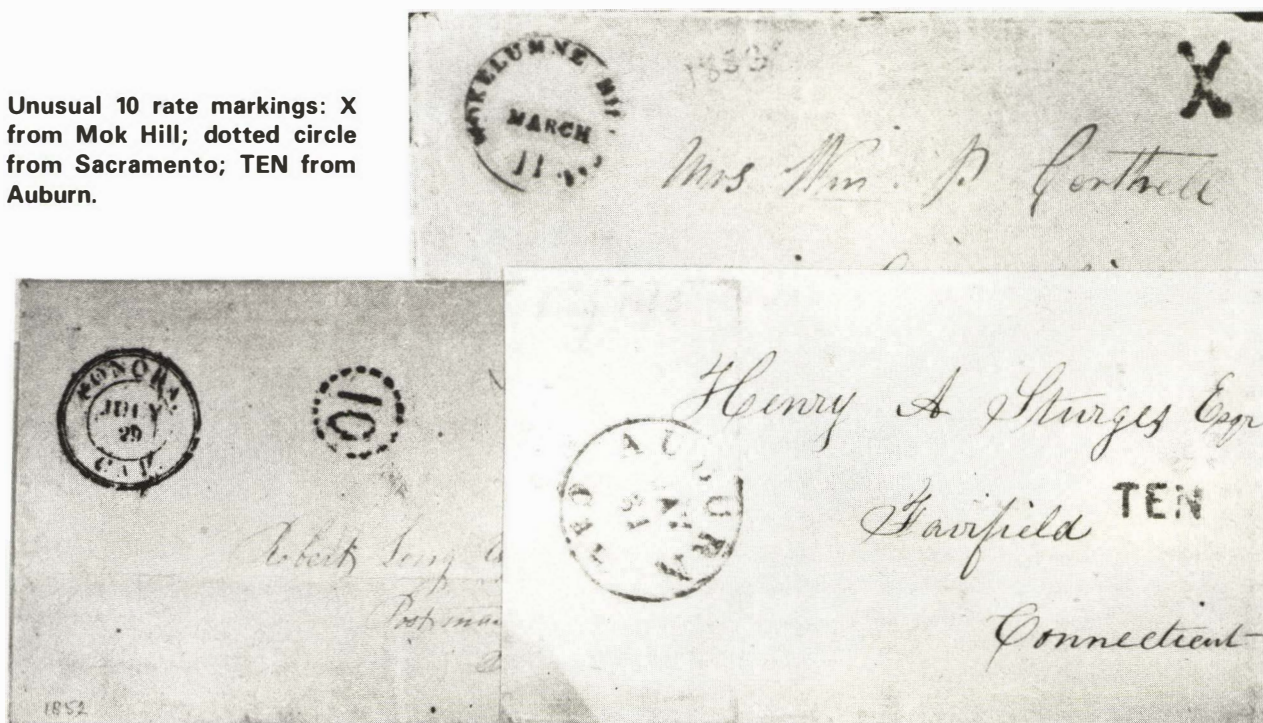 Unusual 10 rate markings: X
from Mok Hill; dotted circle
from Sacramento; TEN from
Auburn.
MOKELUMNE HILL
MARCH
11
1853
X
Mrs Wm. P.
SONORA.
JULY
29
CAL.
10
Robert
1852
AUBURN
31
Henry A Sturges Esqr
Fairfield
TEN
Connecticut